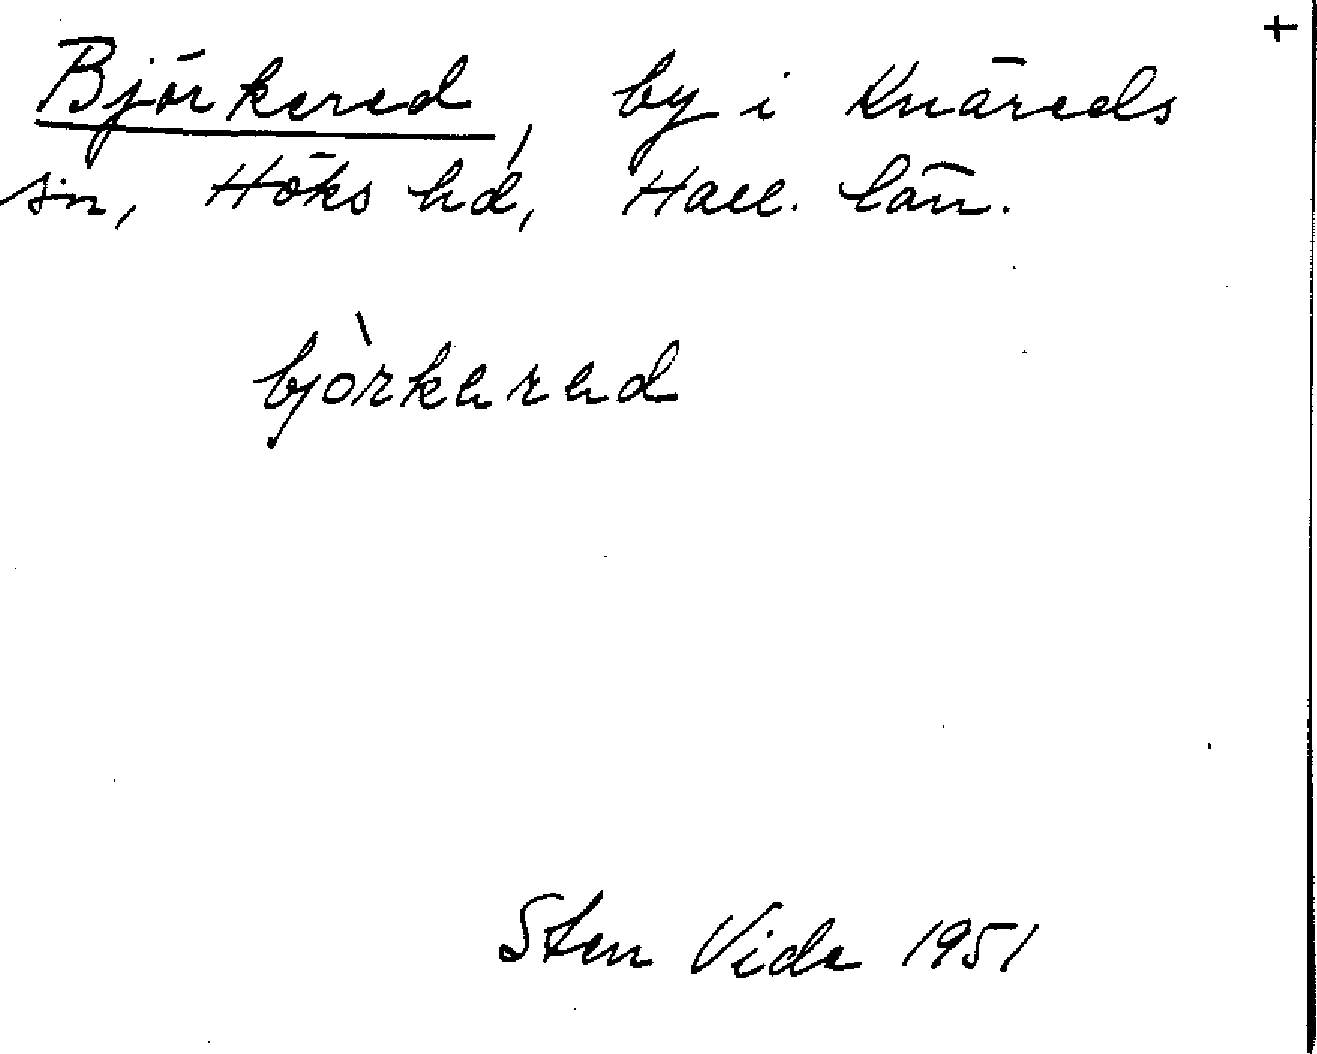 +
Björkered, by i Knäreds
sn, Höks hd, Hall. län.
bjòrkered
Sten Vide 1951